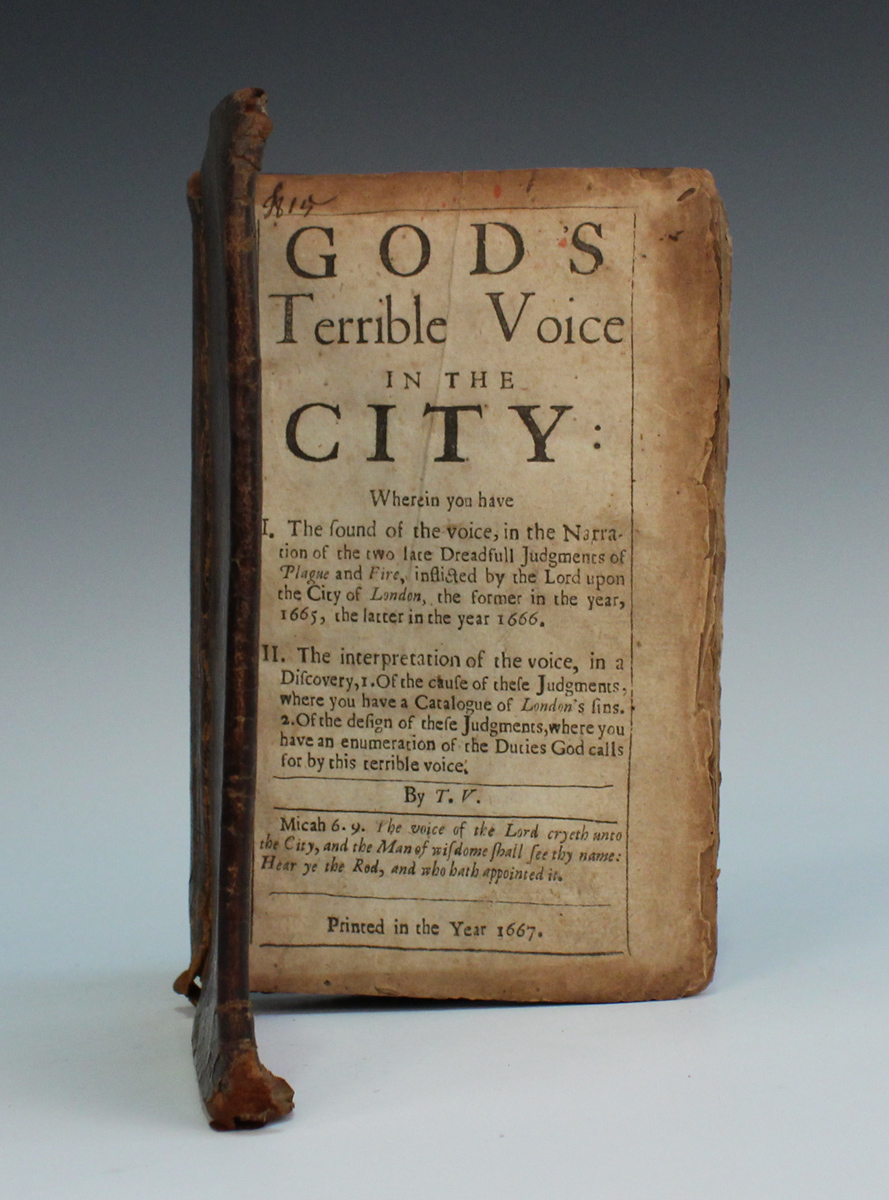 GOD'S
Terrible Voice
IN THE
CITY:
Wherein you have
I. The ſound of the voice, in the Narra-
tion of the two late Dreadfull Judgments of
Plague and Fire, inflicted by the Lord upon
the City of London, the former in the year,
1665, the latter in the year 1666.
II. The interpretation of the voice, in a
Diſcovery,1.Of the cauſe of theſe Judgments,
where you have a Catalogue of London's ſins.
2.Of the deſign of theſe Judgments,where you
have an enumeration of the Duties God calls
for by this terrible voice.
By T. V.
Micah 6. 9. The voice of the Lord cryeth unto
the City, and the Man of wiſdome ſhall ſee thy name:
Hear ye the Rod, and who hath appointed it.
Printed in the Year 1667.